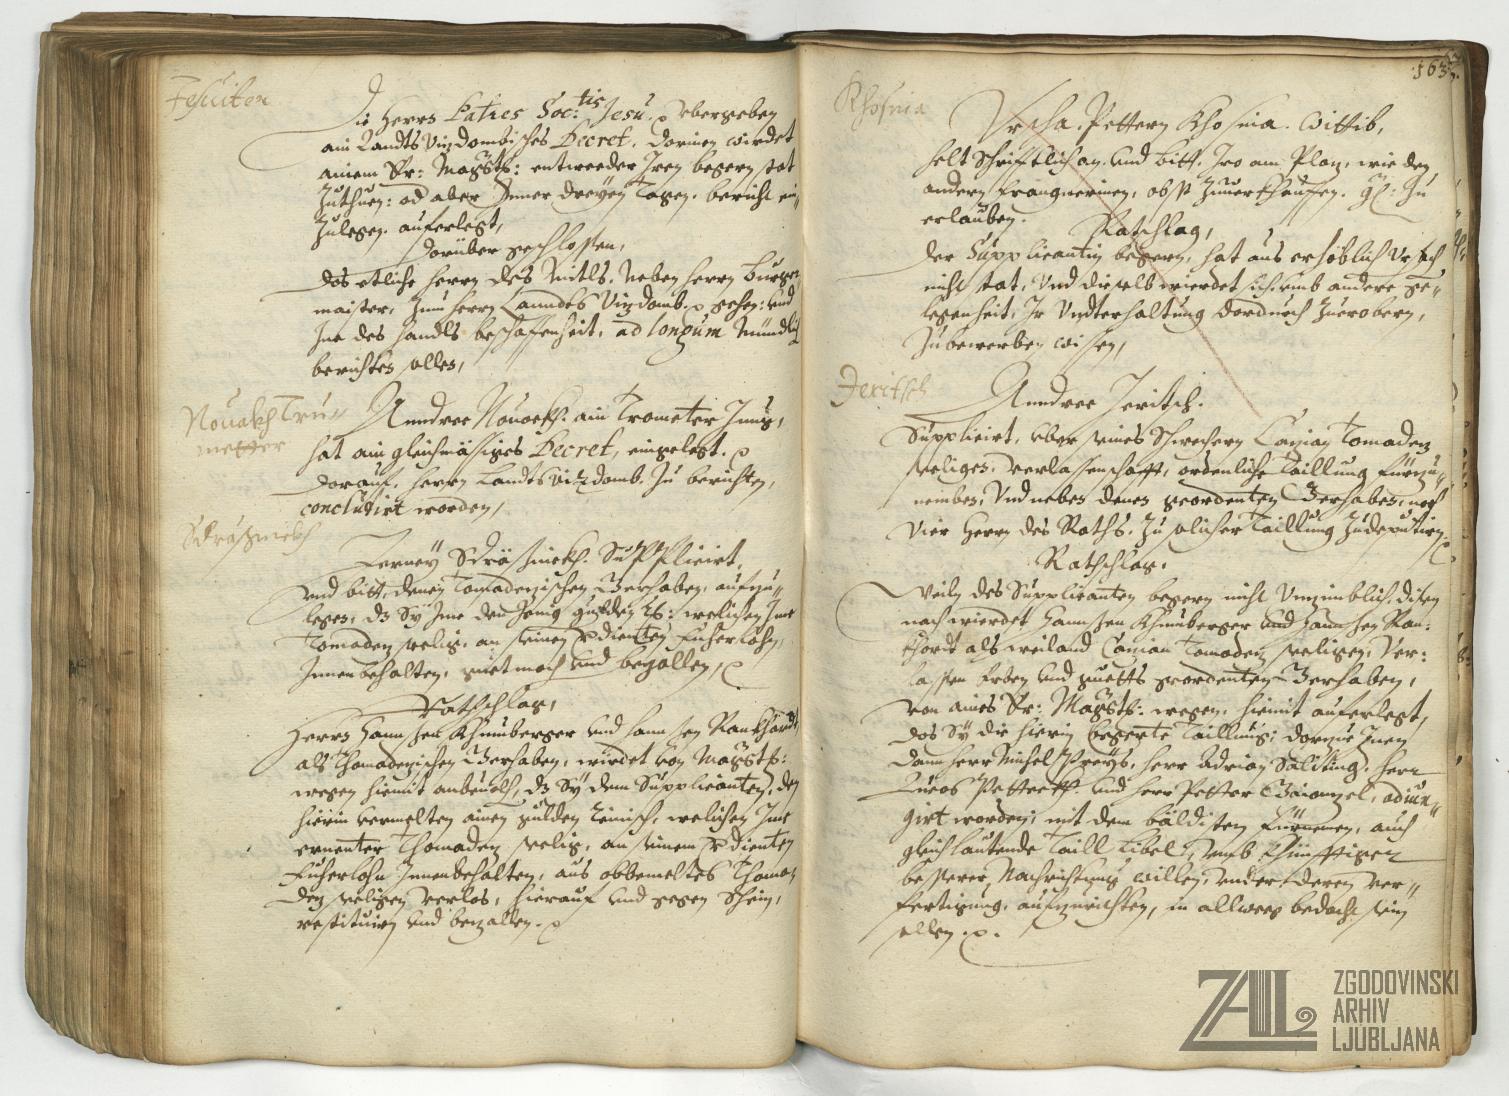 Jesuiten
Die Herrn Patres Soc:tis Jesu. p ubergeben
ain Landts Vizdombisches Decret, darinen wirdet
ainem Er: Magist: entweeder Iren begern stat
Zuthuen: od aber Inner dreyen Tagen. bericht ein=
Zulegen. auferlegt,
Darüber geschlossen,
das etliche herrn des Mitls. Neben herrn Burger=
maister, Zum herrn Lanndts Vizdomb. p gehen: und
Ime des handls beschaffenheit, ad longum Mündlich
berichten sollen,
Nouakh Tru=
metter
Anndree Nouakh. ain Trometer Jung,
hat ain gleichmässiges Decret, eingelegt. p
Darauf, herrn Landts Vizdomb. Zu berichten,
concludirt worden,
Scräsnickh
Jerney Scräsnickh. Supplicirt,
und bitt, denen Tomadenischen Gerhaben, aufzu=
legen, dz Sy Ime den Jenig gulden welichen Ime
Tomaden seelig, an seinem verdienten Fuherlohn,
Innenbehalten, guet mach und bezallen, p
Rathschlag,
Herrn Hannsen Khunberger und Hannsen Rankhardt,
als Thomadenischen Gerhaben, wirdet von Magist:
wegen hiemit anbeuolh, dz Sy dem Supplicanten, den
hierin vermelten ainen gulden Reinisch, welichen Ime
ernenter Thomaden seelig, an seinem verdienten
Fuherlohn Innenbehalten, aus obbemeltes Thoma=
den seeligen verlas, hierauf und gegen Schein,
restituirn und bezallen. p
163
Khosina
Ursha. Pettern Khosina. Wittib,
helt Schrifftlich an. und bitt. Iro am Plaz, wie den
andern Fragnerinen, obst Zuuerkhauffen. Zu
erlauben.
Rathschlag,
Der Supplicantin begern, hat aus erhöblich Ursach
nicht stat, Und dieselb wierdet sich umb andere ge=
legenheit, Ir Underhaltung dardurch Zuerobern,
Zubewerben wissen,
Jeritsch
Anndree Jeritsch.
Supplicirt, uber seines Schwechern Canzian Tomaden
seeliges, verlassenschafft, ordenliche Taillung fürzu=
nemben, Und neben denen geordenten Gerhaben, noch
vier Herrn des Raths. Zu solicher Taillung Zudeputirn.
Rathschlag.
Weiln des Supplicanten begern nicht Unzimblich, disen
nach wierdet Hannsen Khunberger und Hannsen Ran=
khardt als weiland Canzian Tomaden seeligen, Ver=
lassen Erben und guetts geordenten Gerhaben,
von aines Er: Magist: wegen. hiemit auferlegt,
das Sy die hierin begerte Taillung, darzue Inen
dann herr Michel Preys, herr Adrian Saliting, herr
Lucas Petteckh und herr Petter adiun=
girt worden, mit dem bäldisten fürnemen, auch
gleichlautende Taill Libel, umb khünfftiger
besserer Nachrichtung willen, under deren ver=
fertigung, aufzurichten, in allweeg bedacht sein
sollen. p.
ZAL
ZGODOVINSKI
ARHIV
LJUBLJANA